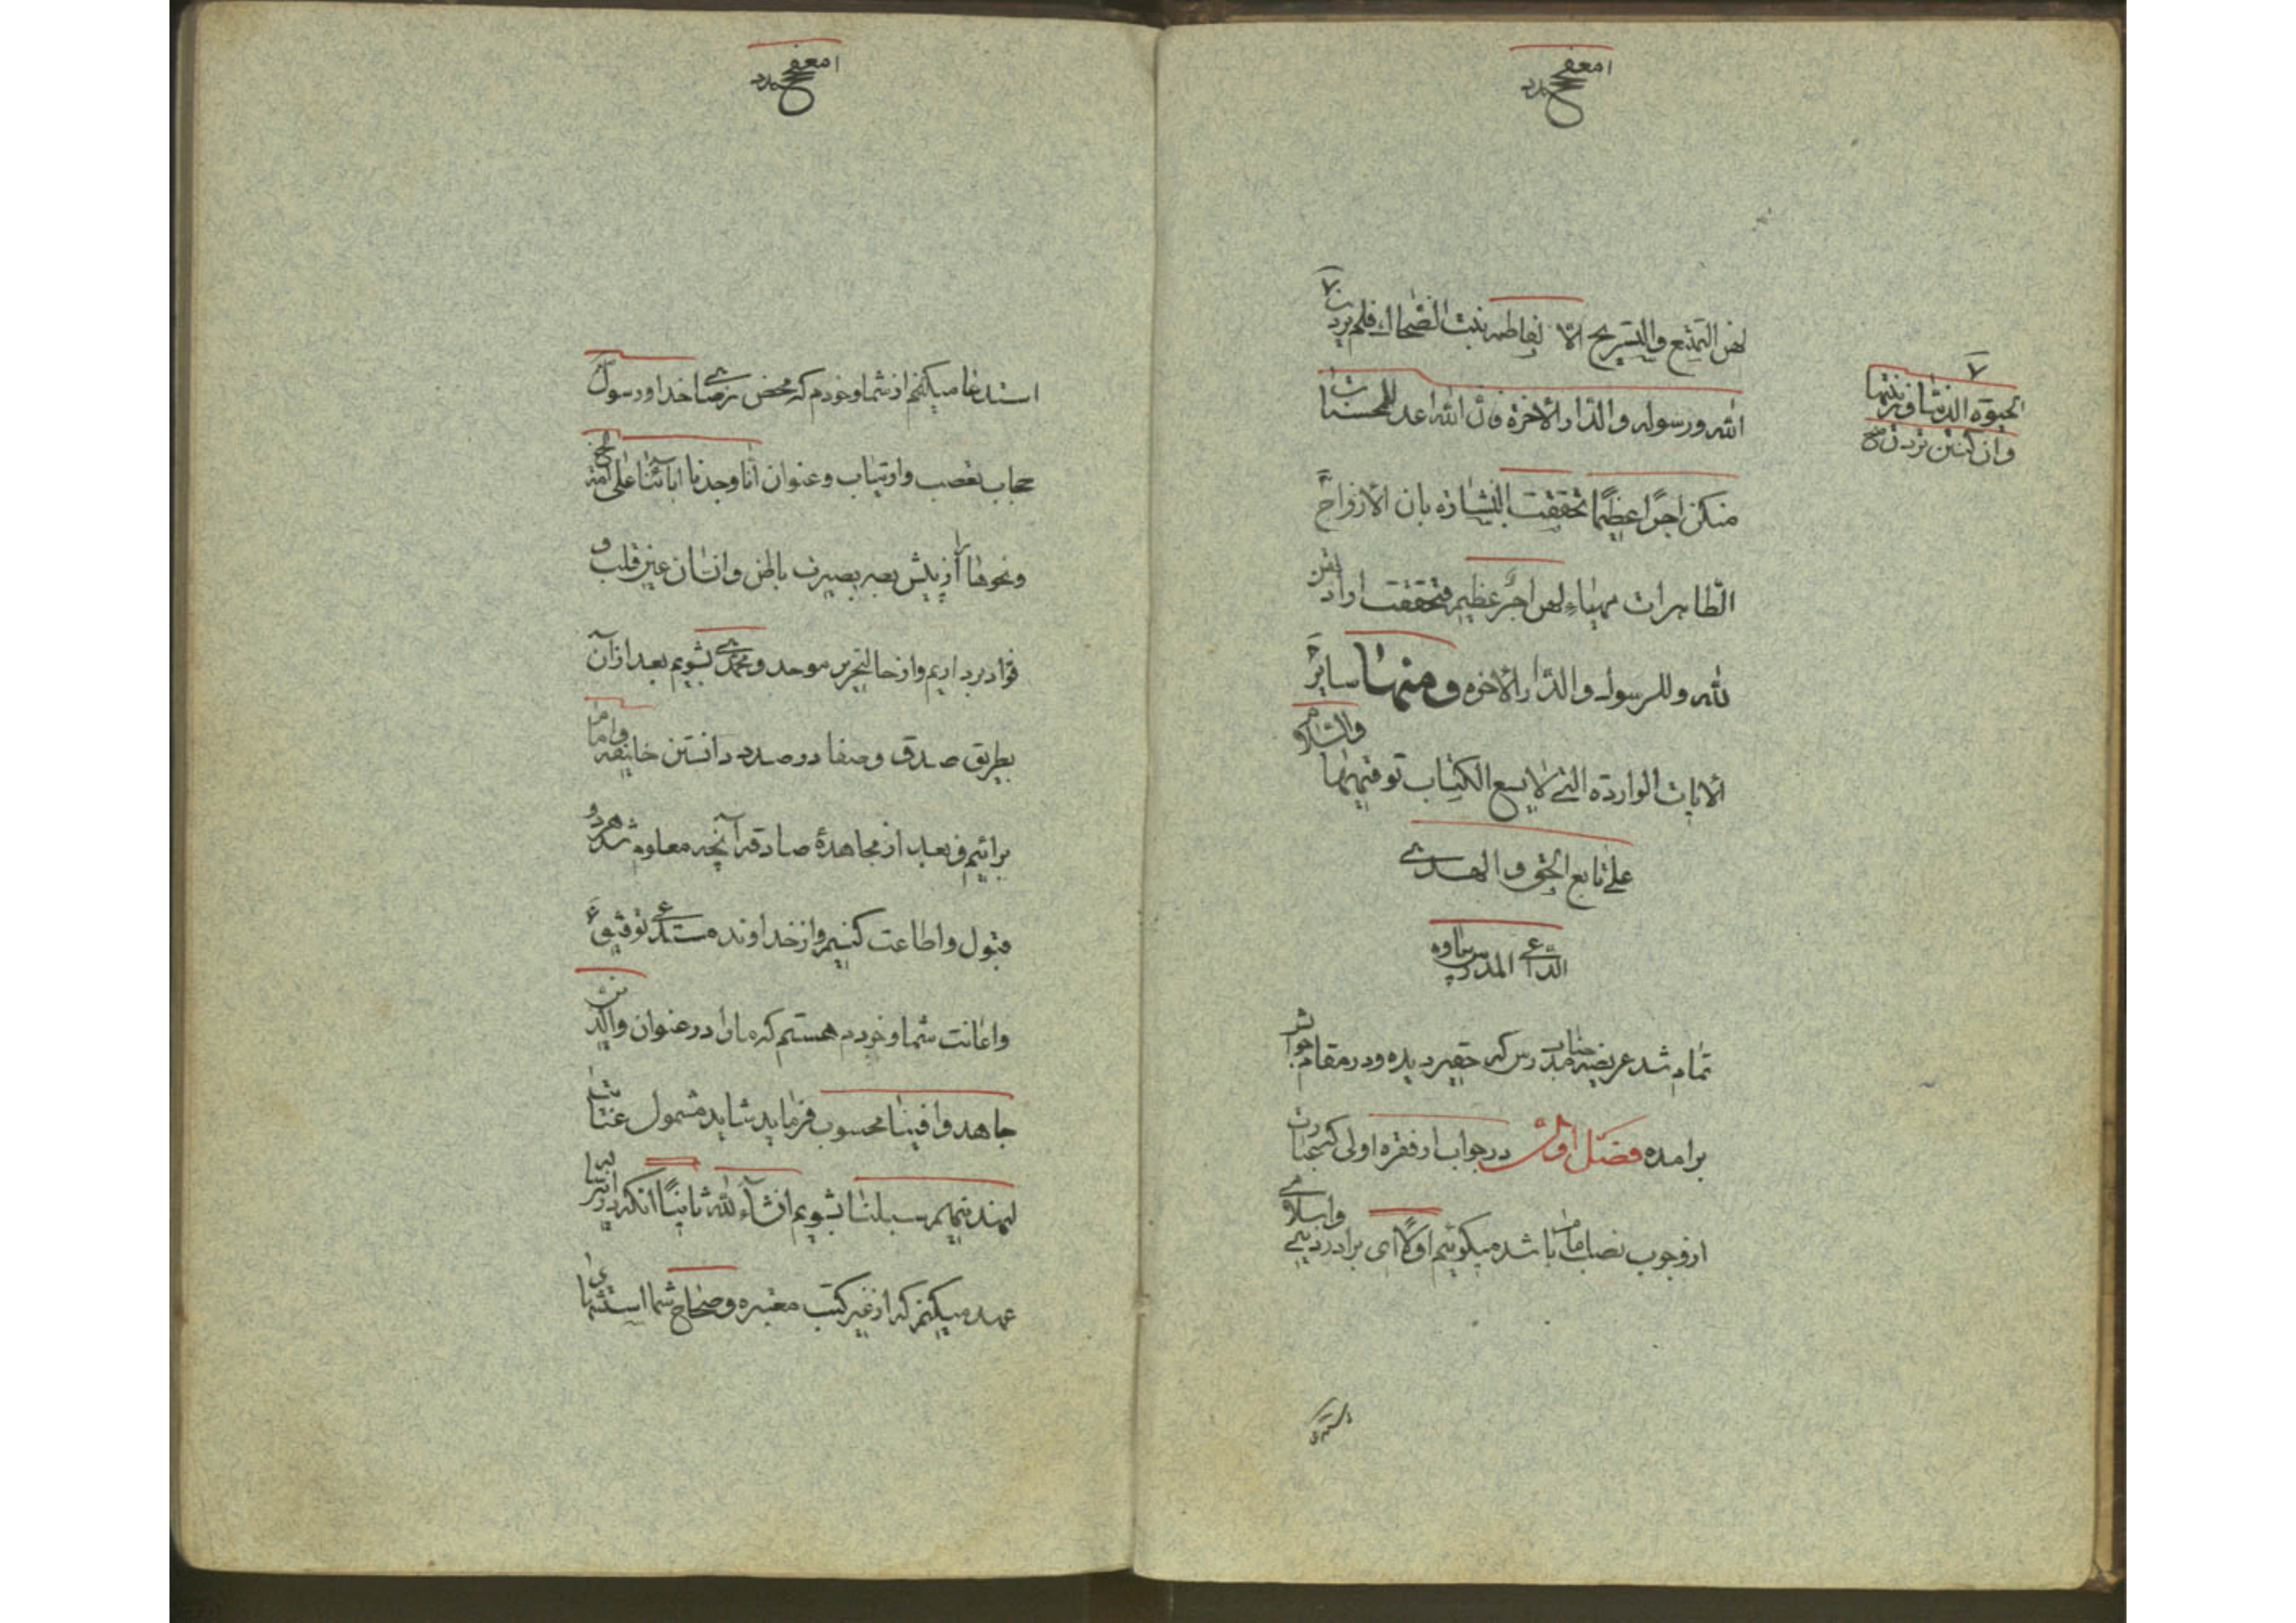 لهن التمتع والتسریح الّا لفاطمه بنت الضحاك فلم یردن
الله ورسوله والدّار الاخرة فانّ الله اعد للمحسنات
الحیوة الدنیا وزینتها
وان کنتن تردن صح
منکن اجرًا عظیمًا تحققت البشارة بان الازواج
الطاهرات مهیاء لهن اجرٌ عظیم فتحققت ارادتهن
لله وللرسول والدّار الاخره ومنها سایر
الایات الواردة التی لا یسع الکتاب توفیتها والسلام
علی تابع الحق والهدی
الدّاعی المدرس ساوه
تمام شد عریضه جناب مدرس که حقیر دیده ودر مقام جواب
برامده فصل اول در جواب از فقره اولی که عبارت
از وجوب نصب امام باشد میکوئیم اوّلًا ای برادر دینی واسلامی
استدعا میکنم از شما وخودم که محض رضای خدا ورسول
حجاب تعصب وارتیاب وعنوان انّا وجدنا ابائنا علی امة الخ
ونحوها را از پیش بصر بصیرت باطن وانسان عین قلب و
فؤاد برداریم واز حالا بتحریر موحد ومحمدی بشویم بعد از آن
بطریق صدق وصفا در صدد دانستن خلیفه وامام
برائیم وبعد از مجاهدهٔ صادقه آنچه معلوم شد
قبول واطاعت کنیم واز خداوند مستدعی توفیق
واعانت شما وخودم هستم که ماها را در عنوان والذین
جاهدوا فینا محسوب فرماید شاید مشمول عنایت
لنهدینهم سبلنا بشویم انشآء الله ثانیًا انکه
عهد میکنم که از غیر کتب معتبره وصحاح شما